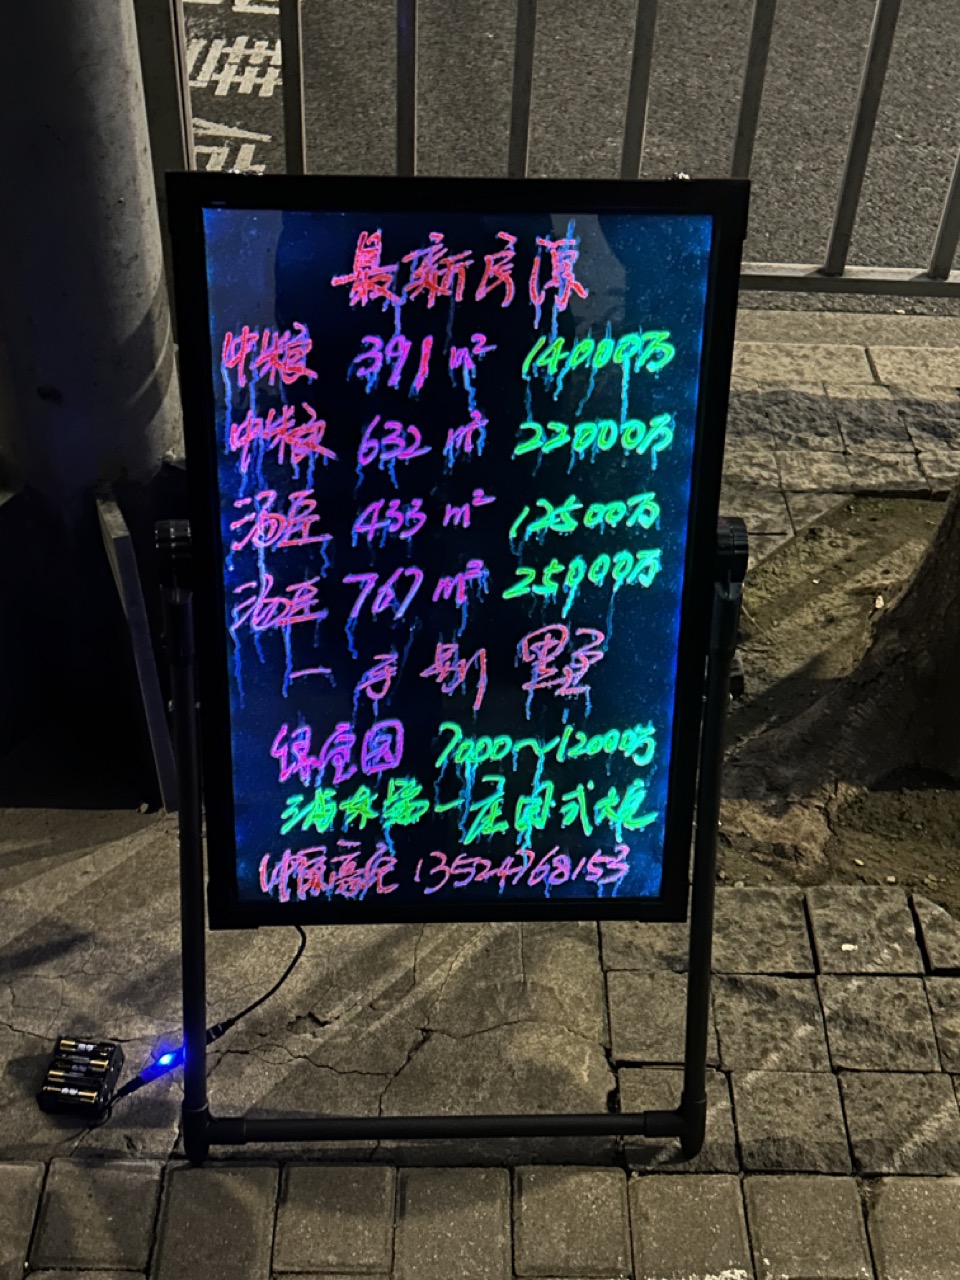 最新房源
中粮 391 m² 14000万
中粮 632 m² 22000万
汤臣 433 m² 12500万
汤臣 767 m² 25000万
一手别墅
绿宝园 7000~12000万
浦东第一座固式大宅
仲原高宏 13524768153